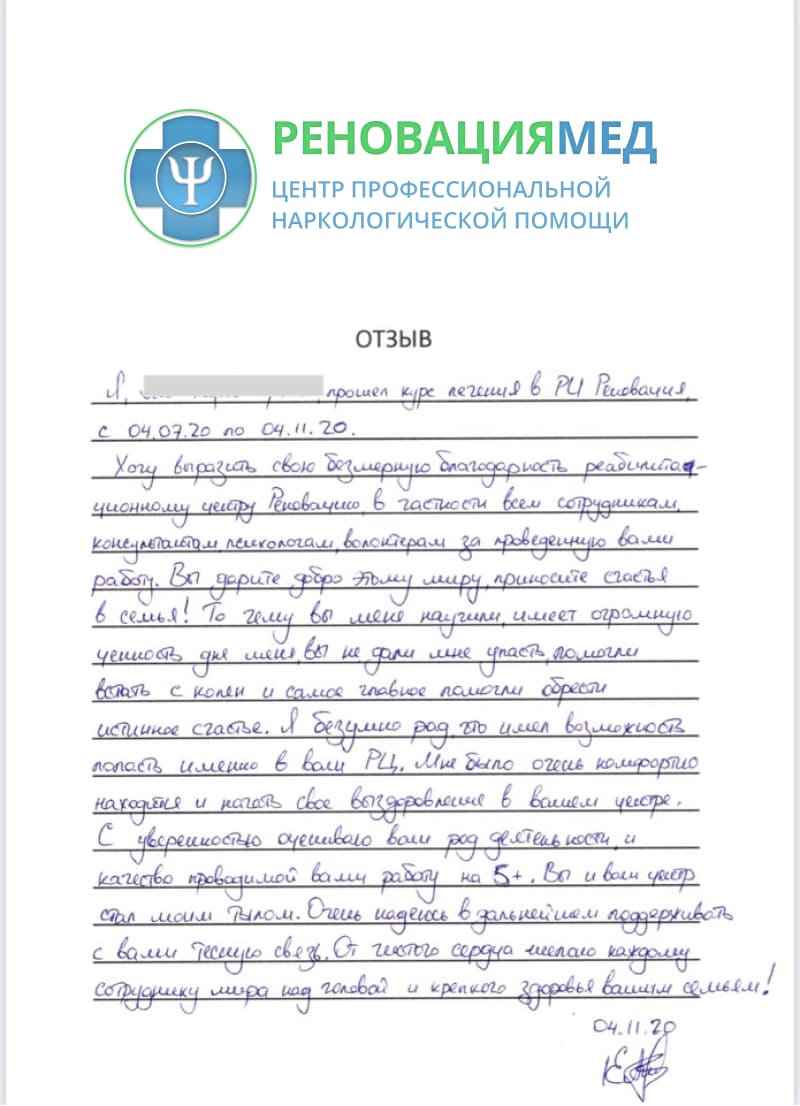 РЕНОВАЦИЯМЕД
ЦЕНТР ПРОФЕССИОНАЛЬНОЙ
НАРКОЛОГИЧЕСКОЙ ПОМОЩИ
ОТЗЫВ
Я, прошел курс лечения в РЦ Реновация,
с 04.07.20 по 04.11.20.
Хочу выразить свою безмерную благодарность реабилита-
ционному центру Реновацию, в частности всем сотрудникам,
консультантам, психологам, волонтерам за проведенную вами
работу. Вы дарите добро этому миру, приносите счастья
в семья! То чему вы меня научили, имеет огромную
ценность для меня, вы не дали мне упасть, помогли
встать с колен и самое главное помогли обрести
истинное счастье. Я безумно рад, что имел возможность
попасть именно в ваш РЦ. Мне было очень комфортно
находится и начать свое выздоровление в вашем центре.
С уверенностью оцениваю ваш род деятельности, и
качество проводимой вами работу на 5+. Вы и ваш центр
стал моим тылом. Очень надеюсь в дальнейшем поддерживать
с вами тесную связь. От чистого сердца желаю каждому
сотруднику мира над головой и крепкого здоровья вашим семьям!
04.11.20